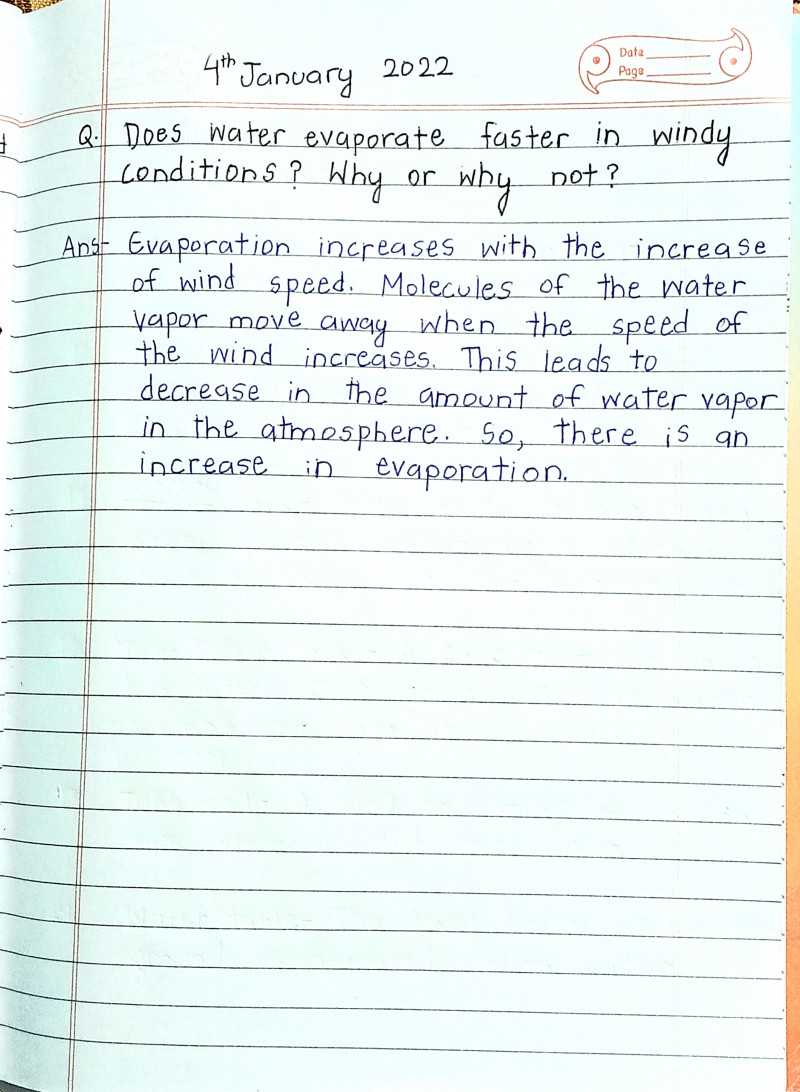 4th January 2022
Date
Page
Q. Does water evaporate faster in windy
conditions? Why or why not?
Ans- Evaporation increases with the increase
of wind speed. Molecules of the water
vapor move away when the speed of
the wind increases. This leads to
decrease in the amount of water vapor
in the atmosphere. So, there is an
increase in evaporation.